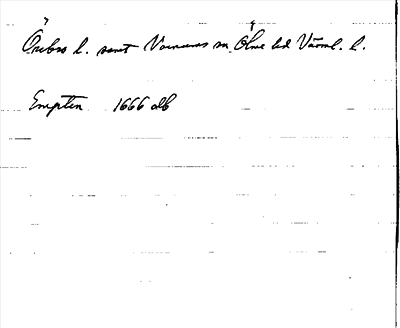 Örebro l. samt Varnums sn, Ölme hd Värml. l.
Empten 1666 db